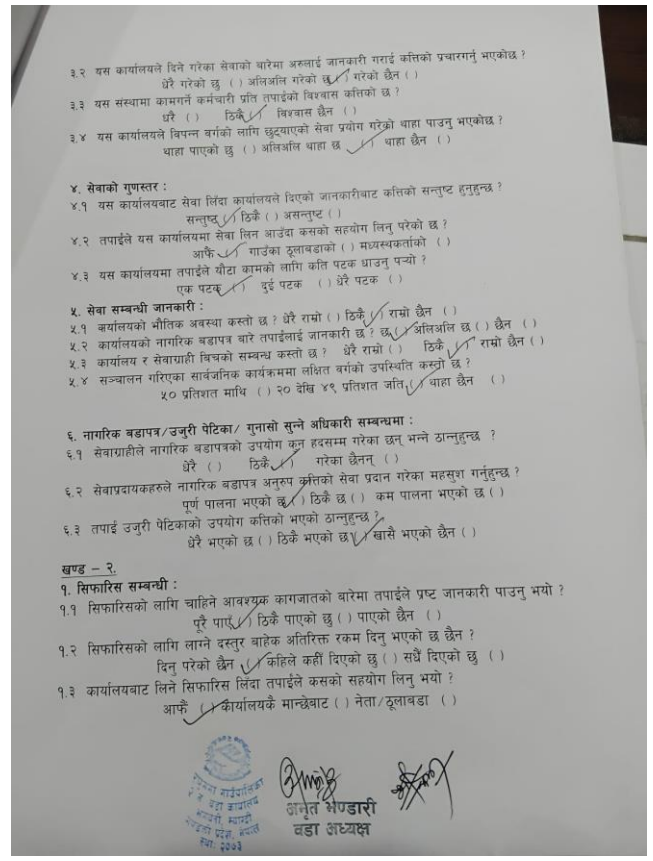 ३.२ यस कार्यालयले दिने गरेका सेवाको बारेमा अरुलाई जानकारी गराई कत्तिको प्रचारगर्नु भएकोछ ?
धेरै गरेको छु ( ) अलिअलि गरेको छु (✓) गरेको छैन ( )
३.३ यस संस्थामा कामगर्ने कर्मचारी प्रति तपाईको विश्वास कत्तिको छ ?
धरै ( ) ठिकै (✓) विश्वास छैन ( )
३.४ यस कार्यालयले विपन्न वर्गको लागि छुट्याएको सेवा प्रयोग गरेको थाहा पाउनु भएकोछ ?
थाहा पाएको छु ( ) अलिअलि थाहा छ (✓) थाहा छैन ( )
४. सेवाको गुणस्तर :
४.१ यस कार्यालयबाट सेवा लिंदा कार्यालयले दिएको जानकारीबाट कत्तिको सन्तुष्ट हुनुहुन्छ ?
सन्तुष्ट (✓) ठिकै ( ) असन्तुष्ट ( )
४.२ तपाईले यस कार्यालयमा सेवा लिन आउँदा कसको सहयोग लिनु परेको छ ?
आफै (✓) गाउँका ठूलाबडाको ( ) मध्यस्थकर्ताको ( )
४.३ यस कार्यालयमा तपाईले यौटा कामको लागि कति पटक धाउनु पऱ्यो ?
एक पटक (✓) दुई पटक ( ) धेरै पटक ( )
५. सेवा सम्बन्धी जानकारी :
५.१ कार्यालयको भौतिक अवस्था कस्तो छ ? धेरै राम्रो ( ) ठिकै (✓) राम्रो छैन ( )
५.२ कार्यालयको नागरिक बडापत्र बारे तपाईलाई जानकारी छ ? छ (✓) अलिअलि छ ( ) छैन ( )
५.३ कार्यालय र सेवाग्राही बिचको सम्बन्ध कस्तो छ ? धेरै राम्रो ( ) ठिकै (✓) राम्रो छैन ( )
५.४ सञ्चालन गरिएका सार्वजनिक कार्यक्रममा लक्षित वर्गको उपस्थिति कस्तो छ ?
५० प्रतिशत माथि ( ) २० देखि ४९ प्रतिशत जति (✓) थाहा छैन ( )
६. नागरिक बडापत्र/उजुरी पेटिका/ गुनासो सुन्ने अधिकारी सम्बन्धमा :
६.१ सेवाग्राहीले नागरिक बडापत्रको उपयोग कुन हदसम्म गरेका छन् भन्ने ठान्नुहुन्छ ?
धेरै ( ) ठिकै (✓) गरेका छैनन् ( )
६.२ सेवाप्रदायकहरुले नागरिक बडापत्र अनुरुप कत्तिको सेवा प्रदान गरेका महसुश गर्नुहुन्छ ?
पूर्ण पालना भएको छ (✓) ठिकै छ ( ) कम पालना भएको छ ( )
६.३ तपाई उजुरी पेटिकाको उपयोग कत्तिको भएको ठान्नुहुन्छ ?
धेरै भएको छ ( ) ठिकै भएको छ (✓) खासै भएको छैन ( )
खण्ड – २.
१. सिफारिस सम्बन्धी :
१.१ सिफारिसको लागि चाहिने आवश्यक कागजातको बारेमा तपाईले प्रष्ट जानकारी पाउनु भयो ?
पूरै पाएँ (✓) ठिकै पाएको छु ( ) पाएको छैन ( )
१.२ सिफारिसको लागि लाग्ने दस्तुर बाहेक अतिरिक्त रकम दिनु भएको छ छैन ?
दिनु परेको छैन (✓) कहिले कहीं दिएको छु ( ) सधैं दिएको छु ( )
१.३ कार्यालयबाट लिने सिफारिस लिँदा तपाईले कसको सहयोग लिनु भयो ?
आफैं (✓) कार्यालयकै मान्छेबाट ( ) नेता/ठूलाबडा ( )
गाउँपालिका
वडा कार्यालय
म्याग्दी
प्रदेश, नेपाल
अमृत भण्डारी
वडा अध्यक्ष